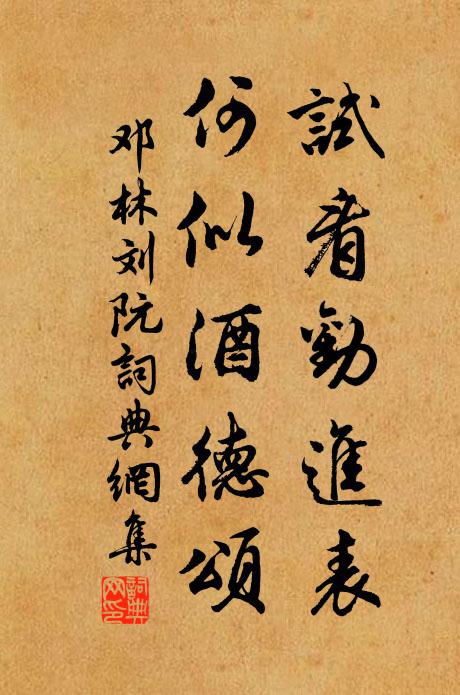 試看勸進表
何似酒德頌
邓林刘阮詞典網集
詞典
网印